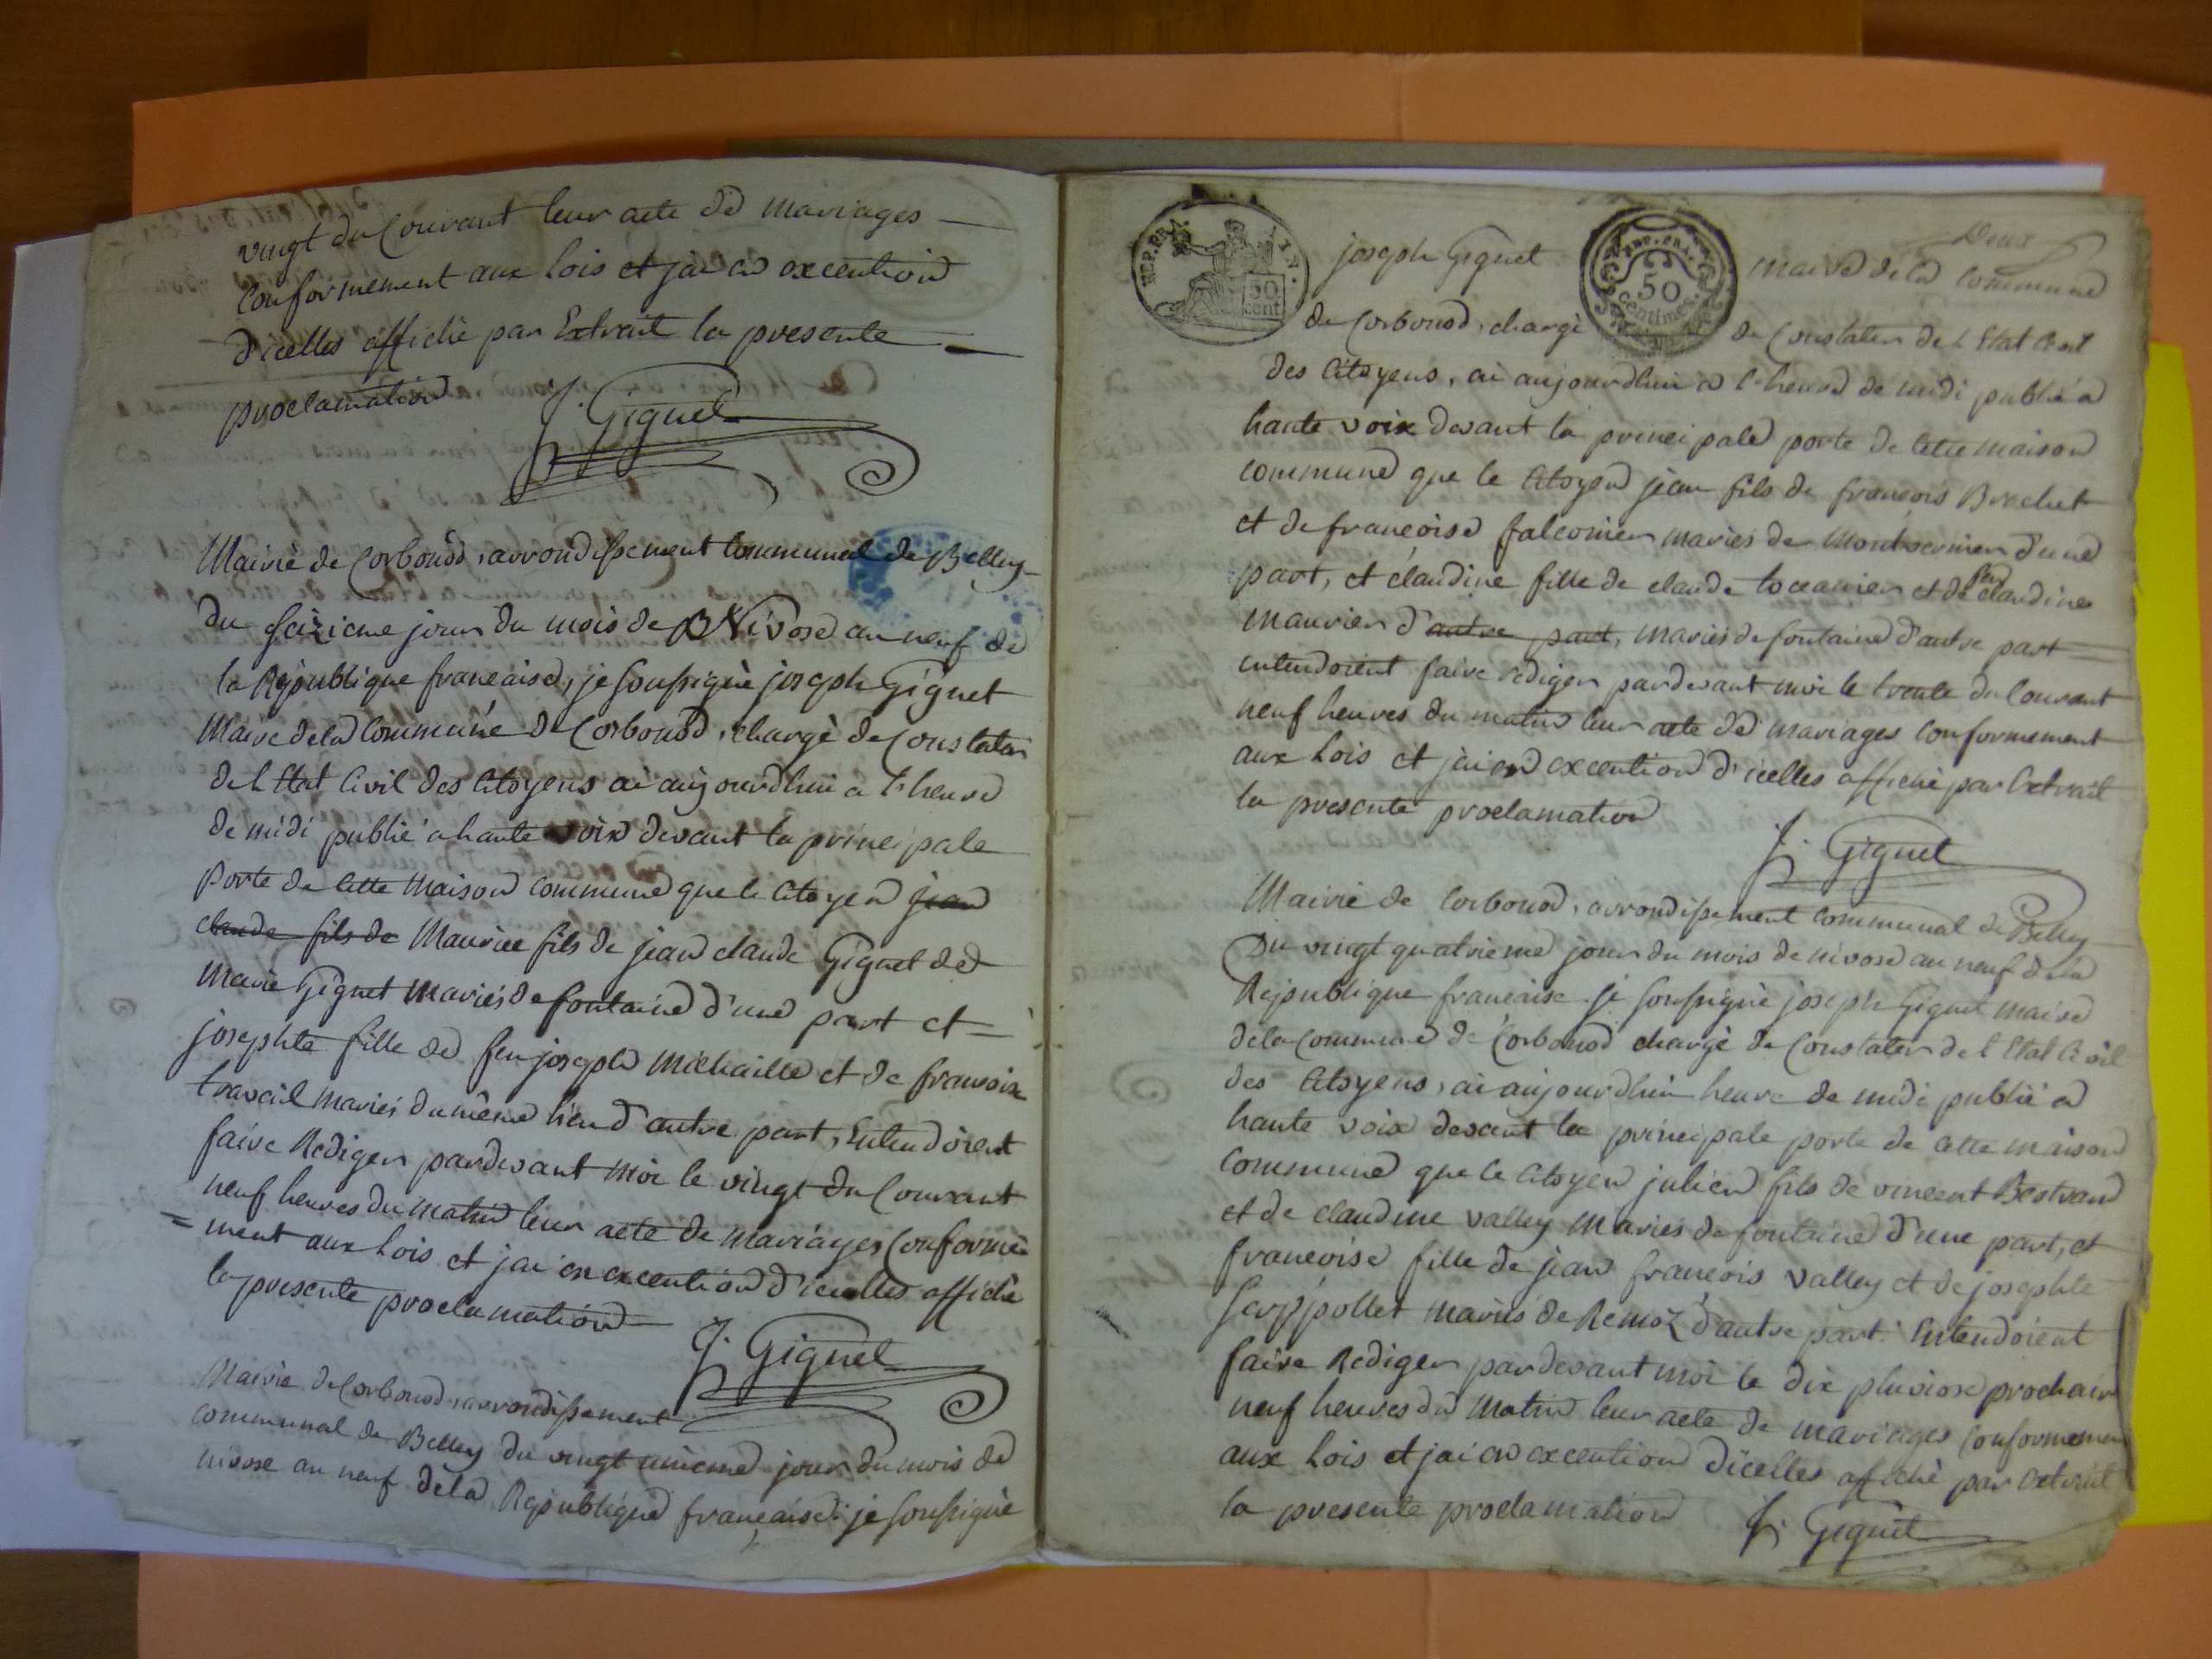 vingt du Courant leur acte de mariages
Conformement aux lois et jai en execution
d'icelles affiché par Extrait la presente
proclamation J. Giguet
Mairie de Corbonod, arrondissement Communal de Belley
du seizieme jour du mois de Nivose an neuf de
la Republique francaise, je soussigné joseph Giguet
Maire de la Commune de Corbonod, chargé de Constater
de l Etat Civil des Citoyens ai aujourdhui a l'heure
de midi publié a haute voix devant la principale
porte de cette maison commune que le Citoyen jean
claude fils de Maurice fils de jean claude Giguet de
marie Giguet mariés de fontaine d'une part et
josephte fille de feu joseph Michaille et de francoise
travail mariés du même lieu d'autre part, Entendoient
faire Rediger pardevant moi le vingt du Courant
neuf heures du matin leur acte de mariages Conformé
= ment aux lois et jai en execution d'icelles affiché
la presente proclamation
J. Giguet
Mairie de Corbonod, arrondissement
communal de Belley du vingt unieme jour du mois de
nivose an neuf dela Republique francaise. je soussigné
Deux
REP. FRA.
50
cent
REP. FRA.
50
centimes
joseph Giguet maire de la Commune
de Corbonod, chargé de Constater de l Etat Civil
des Citoyens, ai aujourdhui a l'heure de midi publié a
haute voix devant la principale porte de cette maison
commune que le Citoyen jean fils de francois Brochet
et de francoise falconier mariés de d'une
part, et claudine fille de claude et de feu claudine
maurier d'autre part, mariés de fontaine d'autre part
entendoient faire rediger pardevant moi le trente du Courant
neuf heures du matin leur acte de mariages conformement
aux lois et jai en execution d'icelles affiché par Extrait
la presente proclamation
J. Giguet
Mairie de Corbonod, arrondissement communal de Belley
Du vingt quatrieme jour du mois de nivose an neuf dela
Republique francaise je soussigné joseph Giguet maire
dela commune de Corbonod chargé de Constater de l Etat Civil
des Citoyens, ai aujourdhui heure de midi publié a
haute voix devant la principale porte de cette maison
commune que le Citoyen julien fils de vincent Bertrand
et de claudine valley mariés de fontaine d'une part, et
francoise fille de jean francois valley et de josephte
Serppollet mariés de Remoz d'autre part. Entendoient
faire Rediger pardevant moi le dix pluviose prochain
neuf heures du matin leur acte de mariages conformement
aux lois et jai en execution d'icelles affiché par Extrait
la presente proclamation J. Giguet